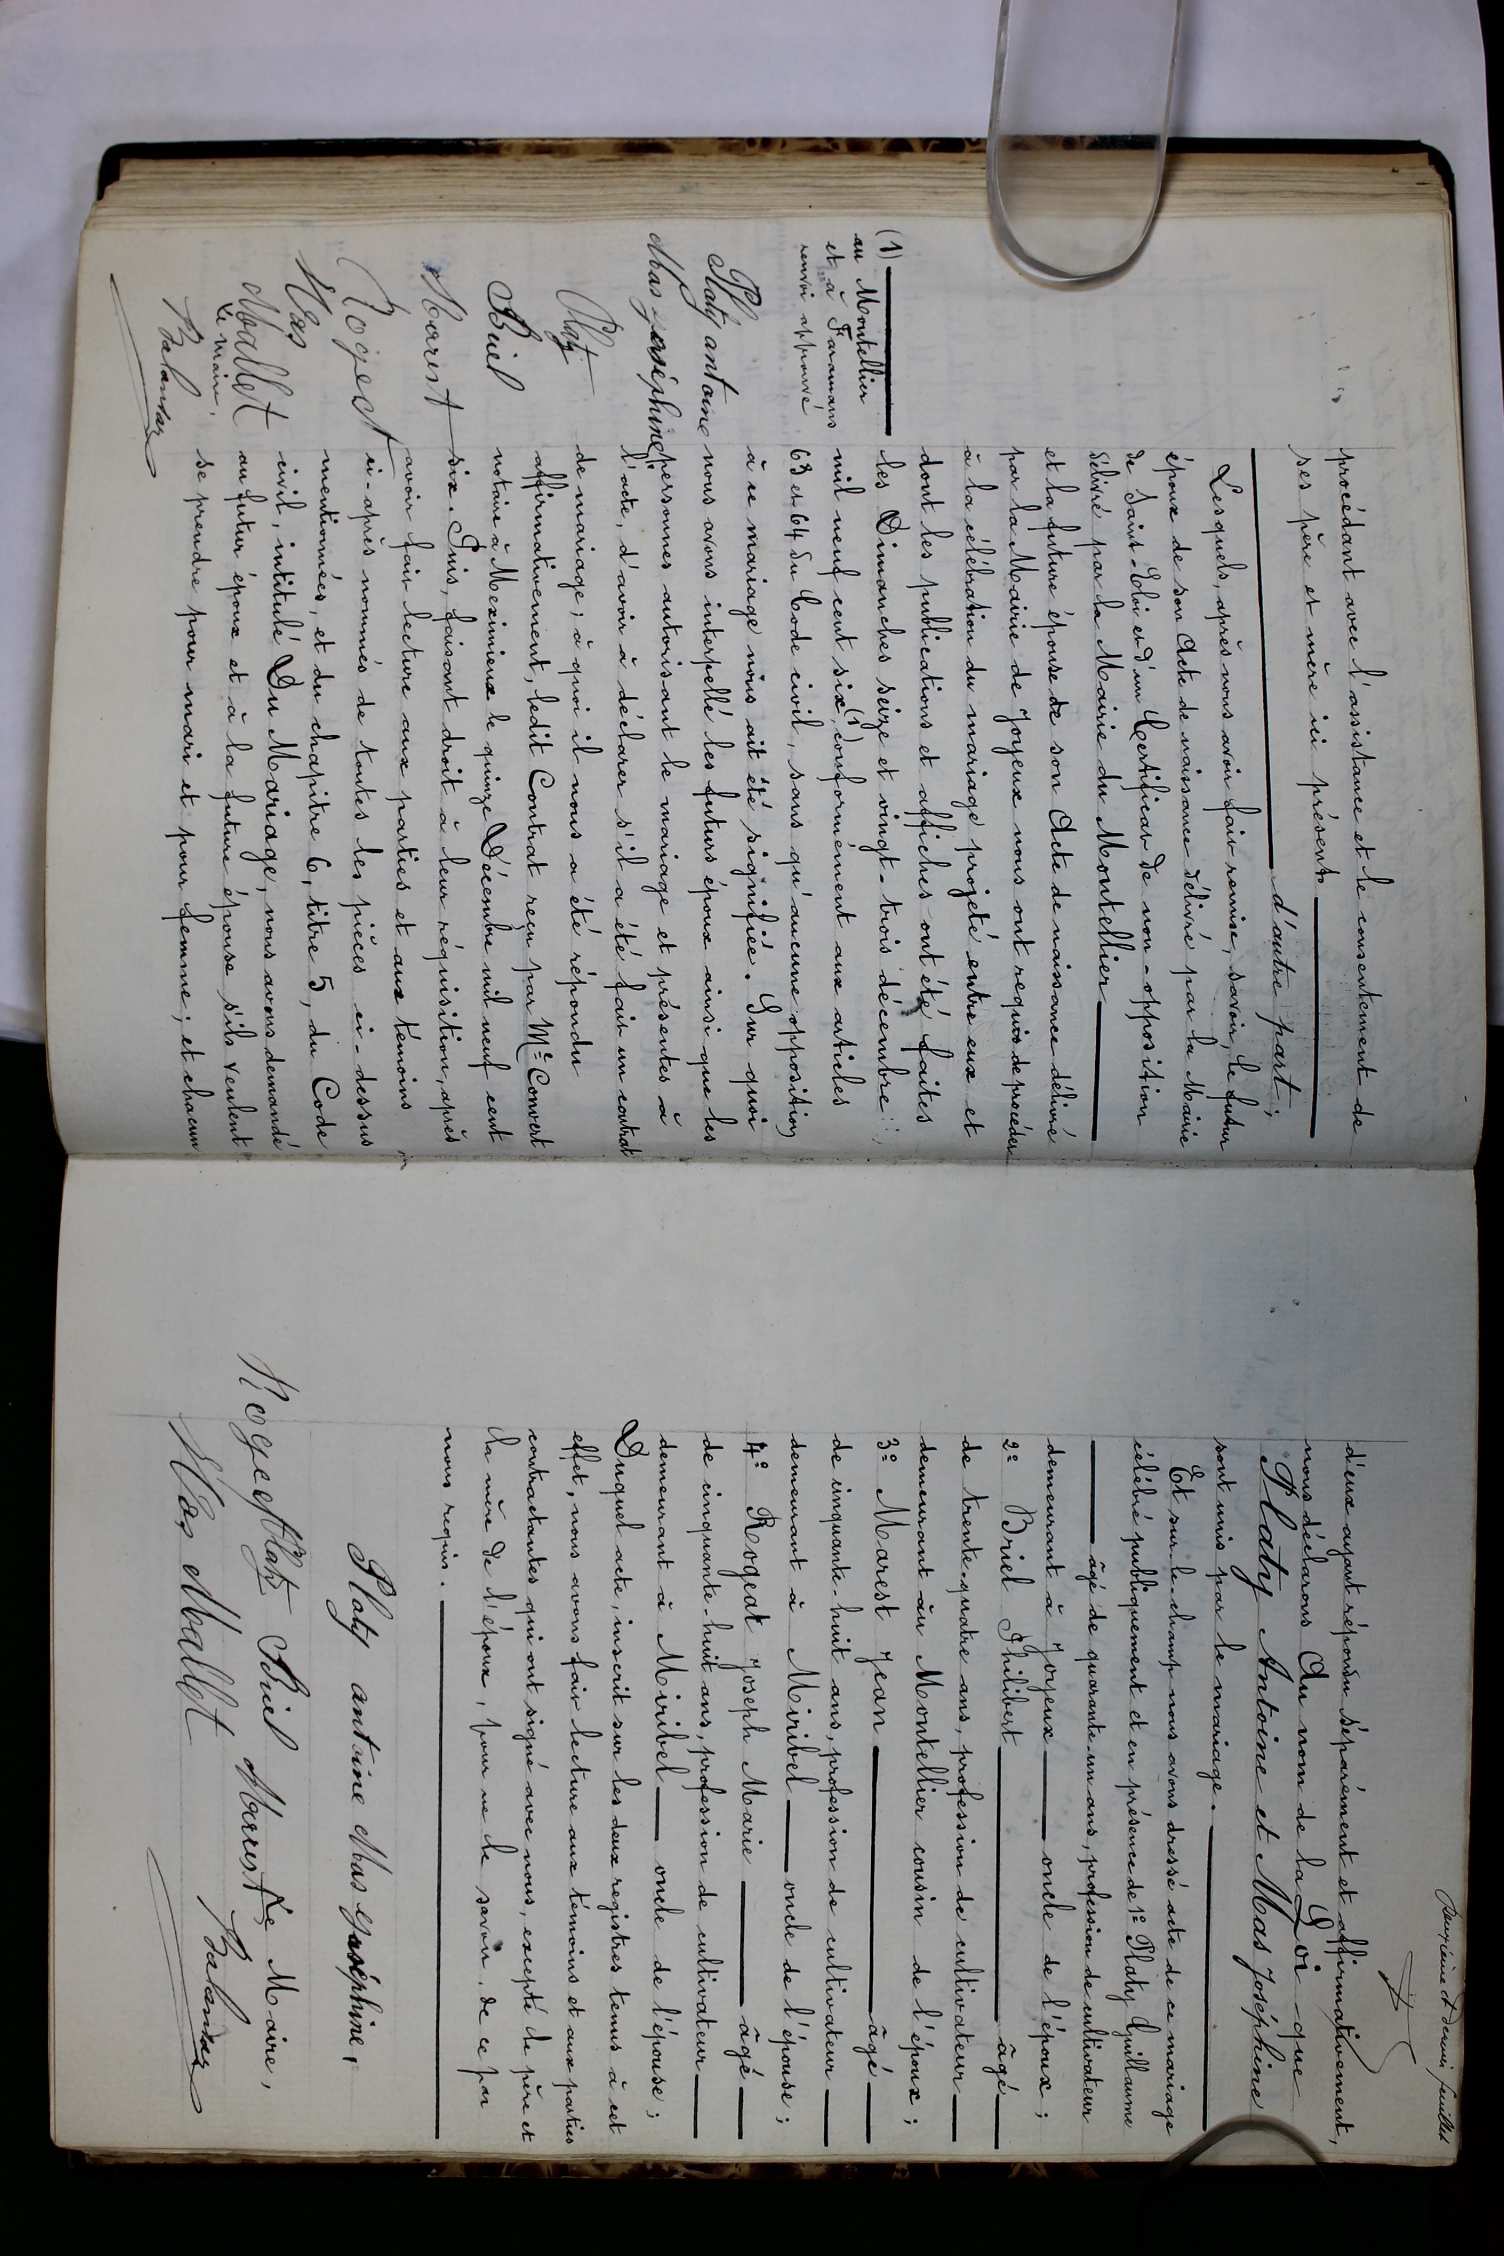 procédant avec l'assistance et le consentement de
ses père et mère ici présents
d'autre part;
Lesquels, après nous avoir fait remise, savoir, le futur
époux de son Acte de naissance délivré par la Mairie
de Saint-Eloi et d'un Certificat de non-opposition
délivré par la Mairie du Montellier
et la future épouse de son Acte de naissance délivré
par la Mairie de Joyeux nous ont requis de procéder
à la célébration du mariage projeté entre eux et
dont les publications et affiches ont été faites
les Dimanches seize et vingt-trois décembre
mil neuf cent six, (1) conformément aux articles
63 et 64 du Code civil, sans qu'aucune opposition
à ce mariage nous ait été signifiée. Sur quoi
nous avons interpellé les futurs époux ainsi que les
personnes autorisant le mariage et présentes à
l'acte, d'avoir à déclarer s'il a été fait un contrat
de mariage; à quoi il nous a été répondu
affirmativement, ledit Contrat reçu par Me Convert
notaire à Meximieux le quinze Décembre mil neuf cent
six. Puis, faisant droit à leur réquisition, après
avoir fait lecture aux parties et aux témoins
ci-après nommés de toutes les pièces ci-dessus
mentionnées, et du chapitre 6, titre 5, du Code
civil, intitulé Du Mariage, nous avons demandé
au futur époux et à la future épouse s'ils veulent
se prendre pour mari et pour femme; et chacun
(1)
au Montellier
et à Faramans
renvoi approuvé
Platy antoine
Mas Joséphine
Platy
Briel
Marest
Rogeat
Mas
Mallet
Le maire,
Deuxième et dernier feuillet
d'eux ayant répondu séparément et affirmativement,
nous déclarons Au nom de la Loi que
Platy Antoine et Mas Joséphine
sont unis par le mariage.
Et sur-le-champ nous avons dressé acte de ce mariage
célébré publiquement et en présence de 1º Platy Guillaume
âgé de quarante-un ans, profession de cultivateur
demeurant à Joyeux oncle de l'époux;
2º Briel Philibert âgé
de trente-quatre ans, profession de cultivateur
demeurant au Montellier cousin de l'époux;
3º Marest Jean âgé
de cinquante-huit ans, profession de cultivateur
demeurant à Miribel oncle de l'épouse;
4º Rogeat Joseph Marie âgé
de cinquante-huit ans, profession de cultivateur
demeurant à Miribel oncle de l'épouse;
Duquel acte, inscrit sur les deux registres tenus à cet
effet, nous avons fait lecture aux témoins et aux parties
contractantes qui ont signé avec nous, excepté le père et
la mère de l'époux, pour ne le savoir, de ce par
nous requis.
Platy antoine Mas Joséphine,
Rogeat Platy Briel Marest Le Maire,
Mas Mallet